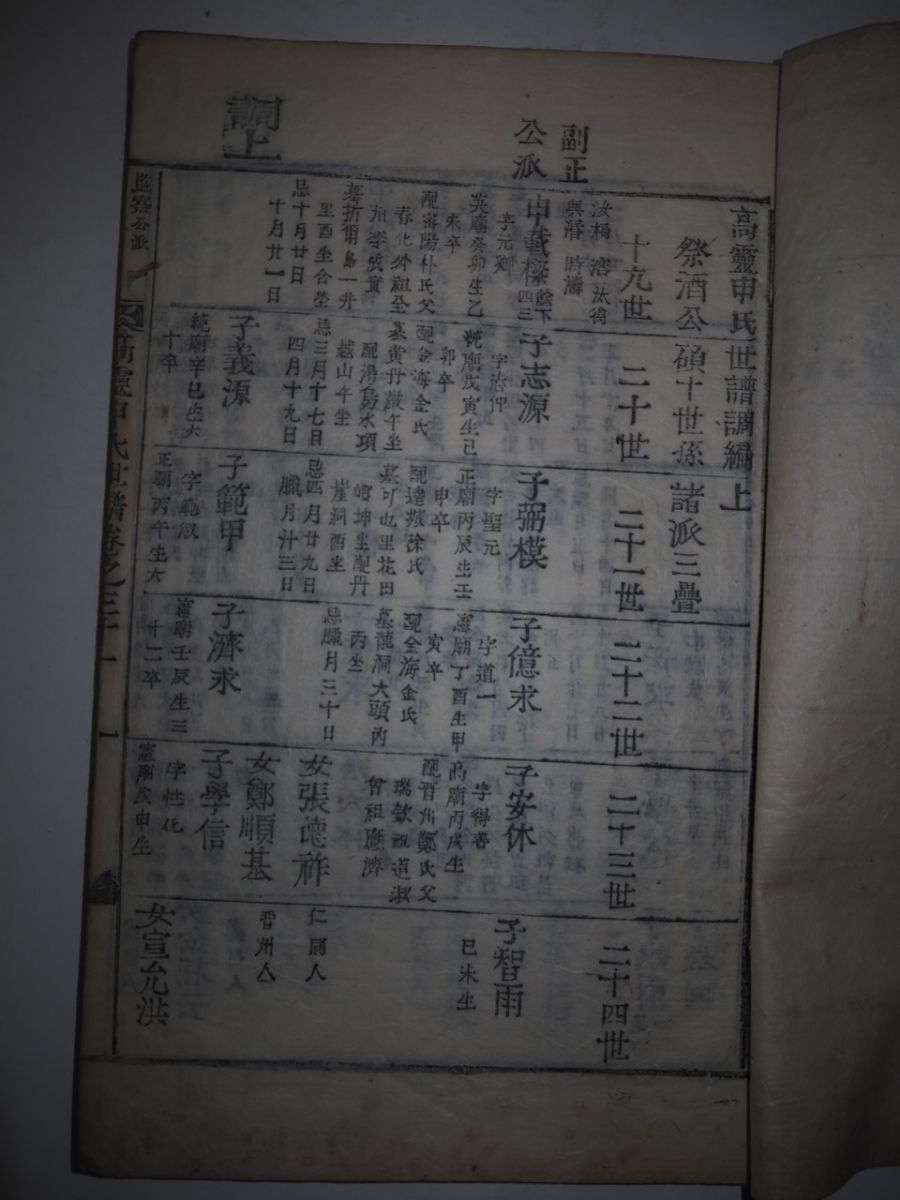 副正
公派
調上
高靈申氏世譜調編上
祭酒公碩十世孫諸派三疊
十九世
二十世
二十一世
二十二世
二十三世
二十四世
汝楫 溶 汰
興濬 時濤
字元卿
英廟癸卯生乙
未卒
配密陽朴氏父
春化外祖全
州李成實
墓折爾島一井
里酉坐合塋
忌十月廿日
十月廿一日
子志源
字志仲
戊寅生己
卯卒
配金海金氏
墓黃丹嚴午坐
配湯
越山午坐
忌三月十七日
四月十九日
子義源
純廟辛巳生六
十卒
子弼模
字聖元
正廟丙辰生壬
申卒
配達城徐氏
坤坐配丹
崖洞酉坐
忌四月廿九日
臘月廿三日
子範甲
字範汝
正廟丙午生六
子億求
字道一
憲廟丁酉生甲
寅卒
配金海金氏
墓龍洞大頭內
丙坐
忌臘月三十日
子濟求
憲廟壬辰生三
十二卒
子安休
字得善
高廟丙戌生
配晋州鄭氏父
瑞欽祖道淑
曾祖應濟
女張德祚
仁同人
女鄭順基
晋州人
子學信
字性化
憲廟戊申生
子智雨
己未生
女宣允洪
監察公派
高靈申氏世譜卷之三十一
一